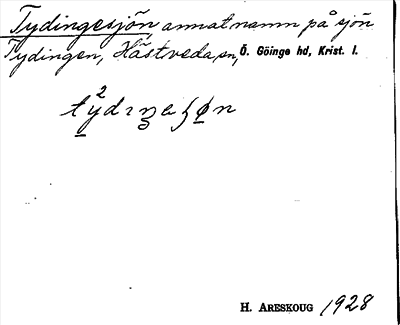 Tydingesjön annat namn på sjön
Tydingen, Hästveda sn, Ö. Göinge hd, Krist. l.
H. ARESKOUG 1928